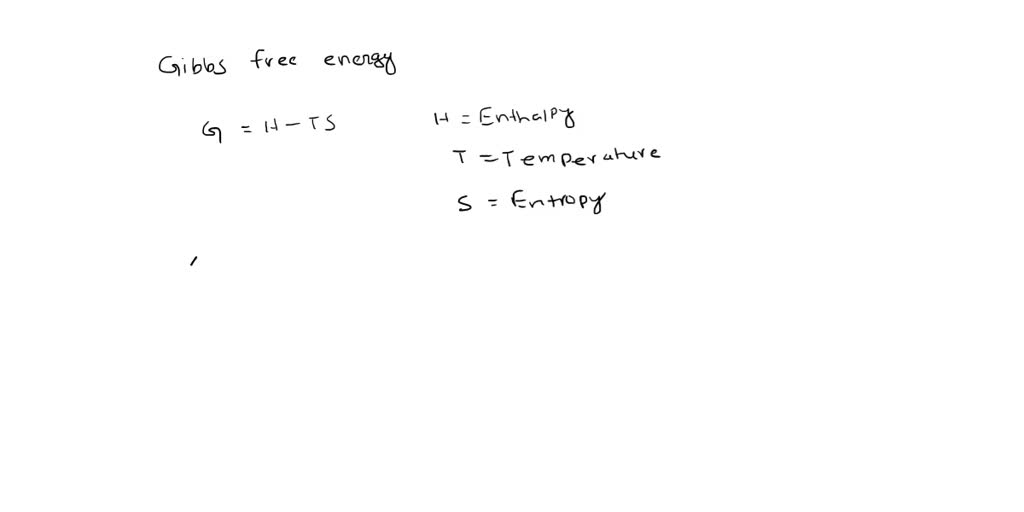 Gibbs free energy
G = H - TS
H = Enthalpy
T = Temperature
S = Entropy